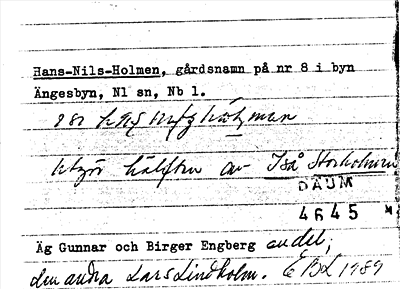 Hans-Nils-Holmen, gårdsnamn på nr 8 i byn
Ängesbyn, Nl sn, Nb l.
utgör hälften av Iså Storholmen
DAUM
4645
Äg Gunnar och Birger Engberg andel,
den andra Lars Lindholm. EBL 1989